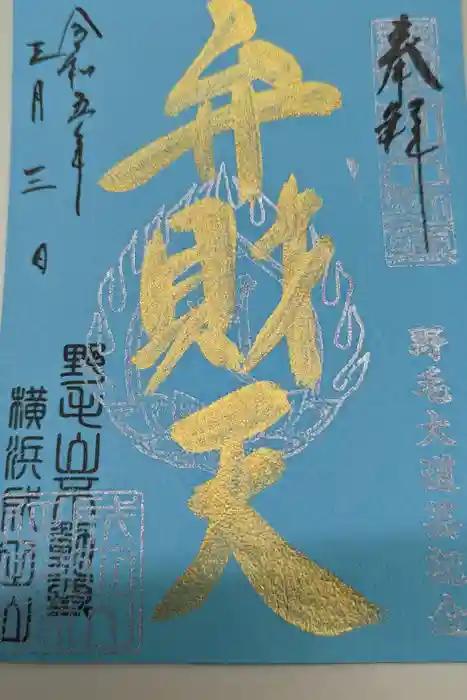 奉拝
野毛大道芸記念
弁財天
令和五年
三月三日
野毛山
横浜成田山